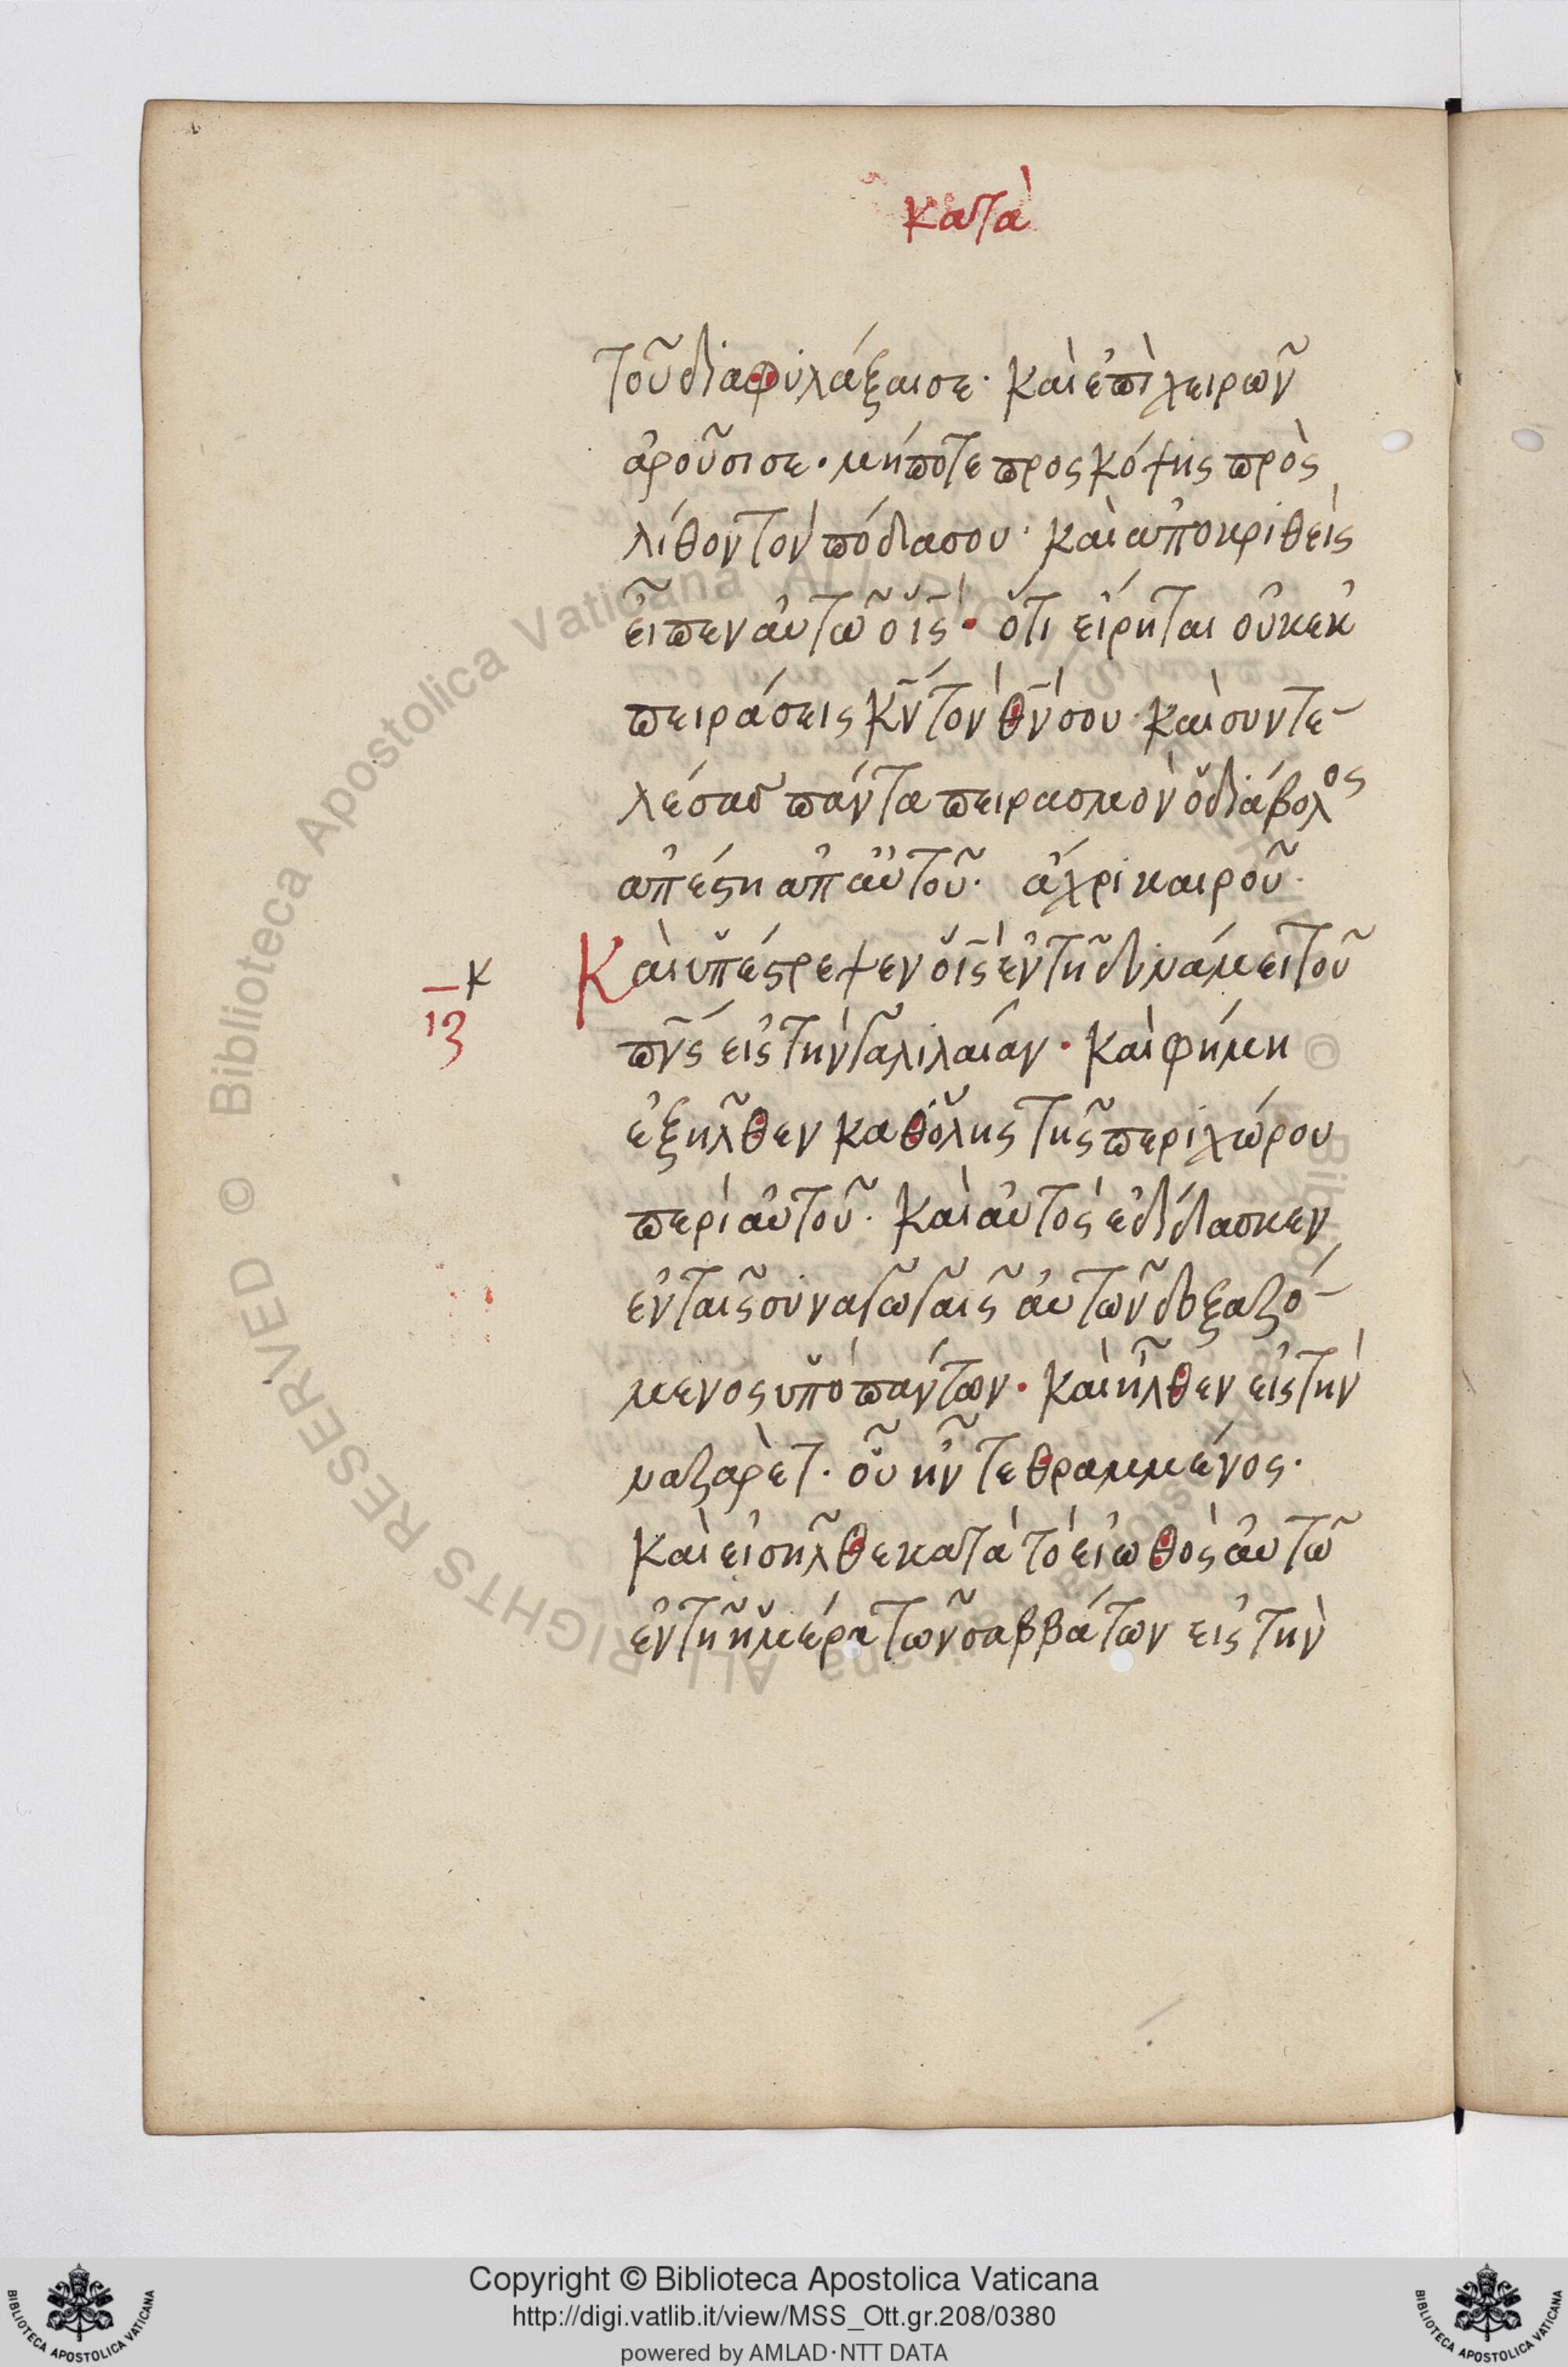 κατὰ
τοῦ διαφυλάξαι σε· καὶ ἐπὶ χειρῶν
ἀροῦσι σε· μήποτε προσκόψης πρὸς
λίθον τὸν πόδα σου· καὶ ἀποκριθεὶς
εἶπεν αὐτῶ ὁ ι̅ς̅· ὅτι εἴρηται οὐκ ἐκ
πειράσεις κ̅ν̅ τὸν θ̅ν̅ σου· καὶ συντε-
λέσας πάντα πειρασμὸν ὁ διάβολος
ἀπέστη ἀπ αὐτοῦ· ἄχρι καιροῦ·
κ
ιζ
Καὶ ὑπέστρεψεν ὁ ι̅ς̅ ἐν τῆ δυνάμει τοῦ
π̅ν̅ς̅ εἰς τὴν γαλιλαίαν· καὶ φήμη
ἐξῆλθεν καθ ὅλης τῆς περιχώρου
περὶ αὐτοῦ· καὶ αὐτὸς ἐδίδασκεν
ἐν ταῖς συναγωγαῖς αὐτῶν δοξαζό-
μενος ὑπὸ πάντων· καὶ ἦλθεν εἰς τὴν
ναζαρὲτ· οὗ ἦν τεθραμμένος·
καὶ εἰσῆλθε κατὰ τὸ εἰωθὸς αὐτῶ
ἐν τῆ ἡμέρα τῶν σαββάτων εἰς τὴν
© Biblioteca Apostolica Vaticana ALL RIGHTS RESERVED
Copyright © Biblioteca Apostolica Vaticana
http://digi.vatlib.it/view/MSS_Ott.gr.208/0380
powered by AMLAD·NTT DATA
BIBLIOTECA APOSTOLICA VATICANA
BIBLIOTECA APOSTOLICA VATICANA